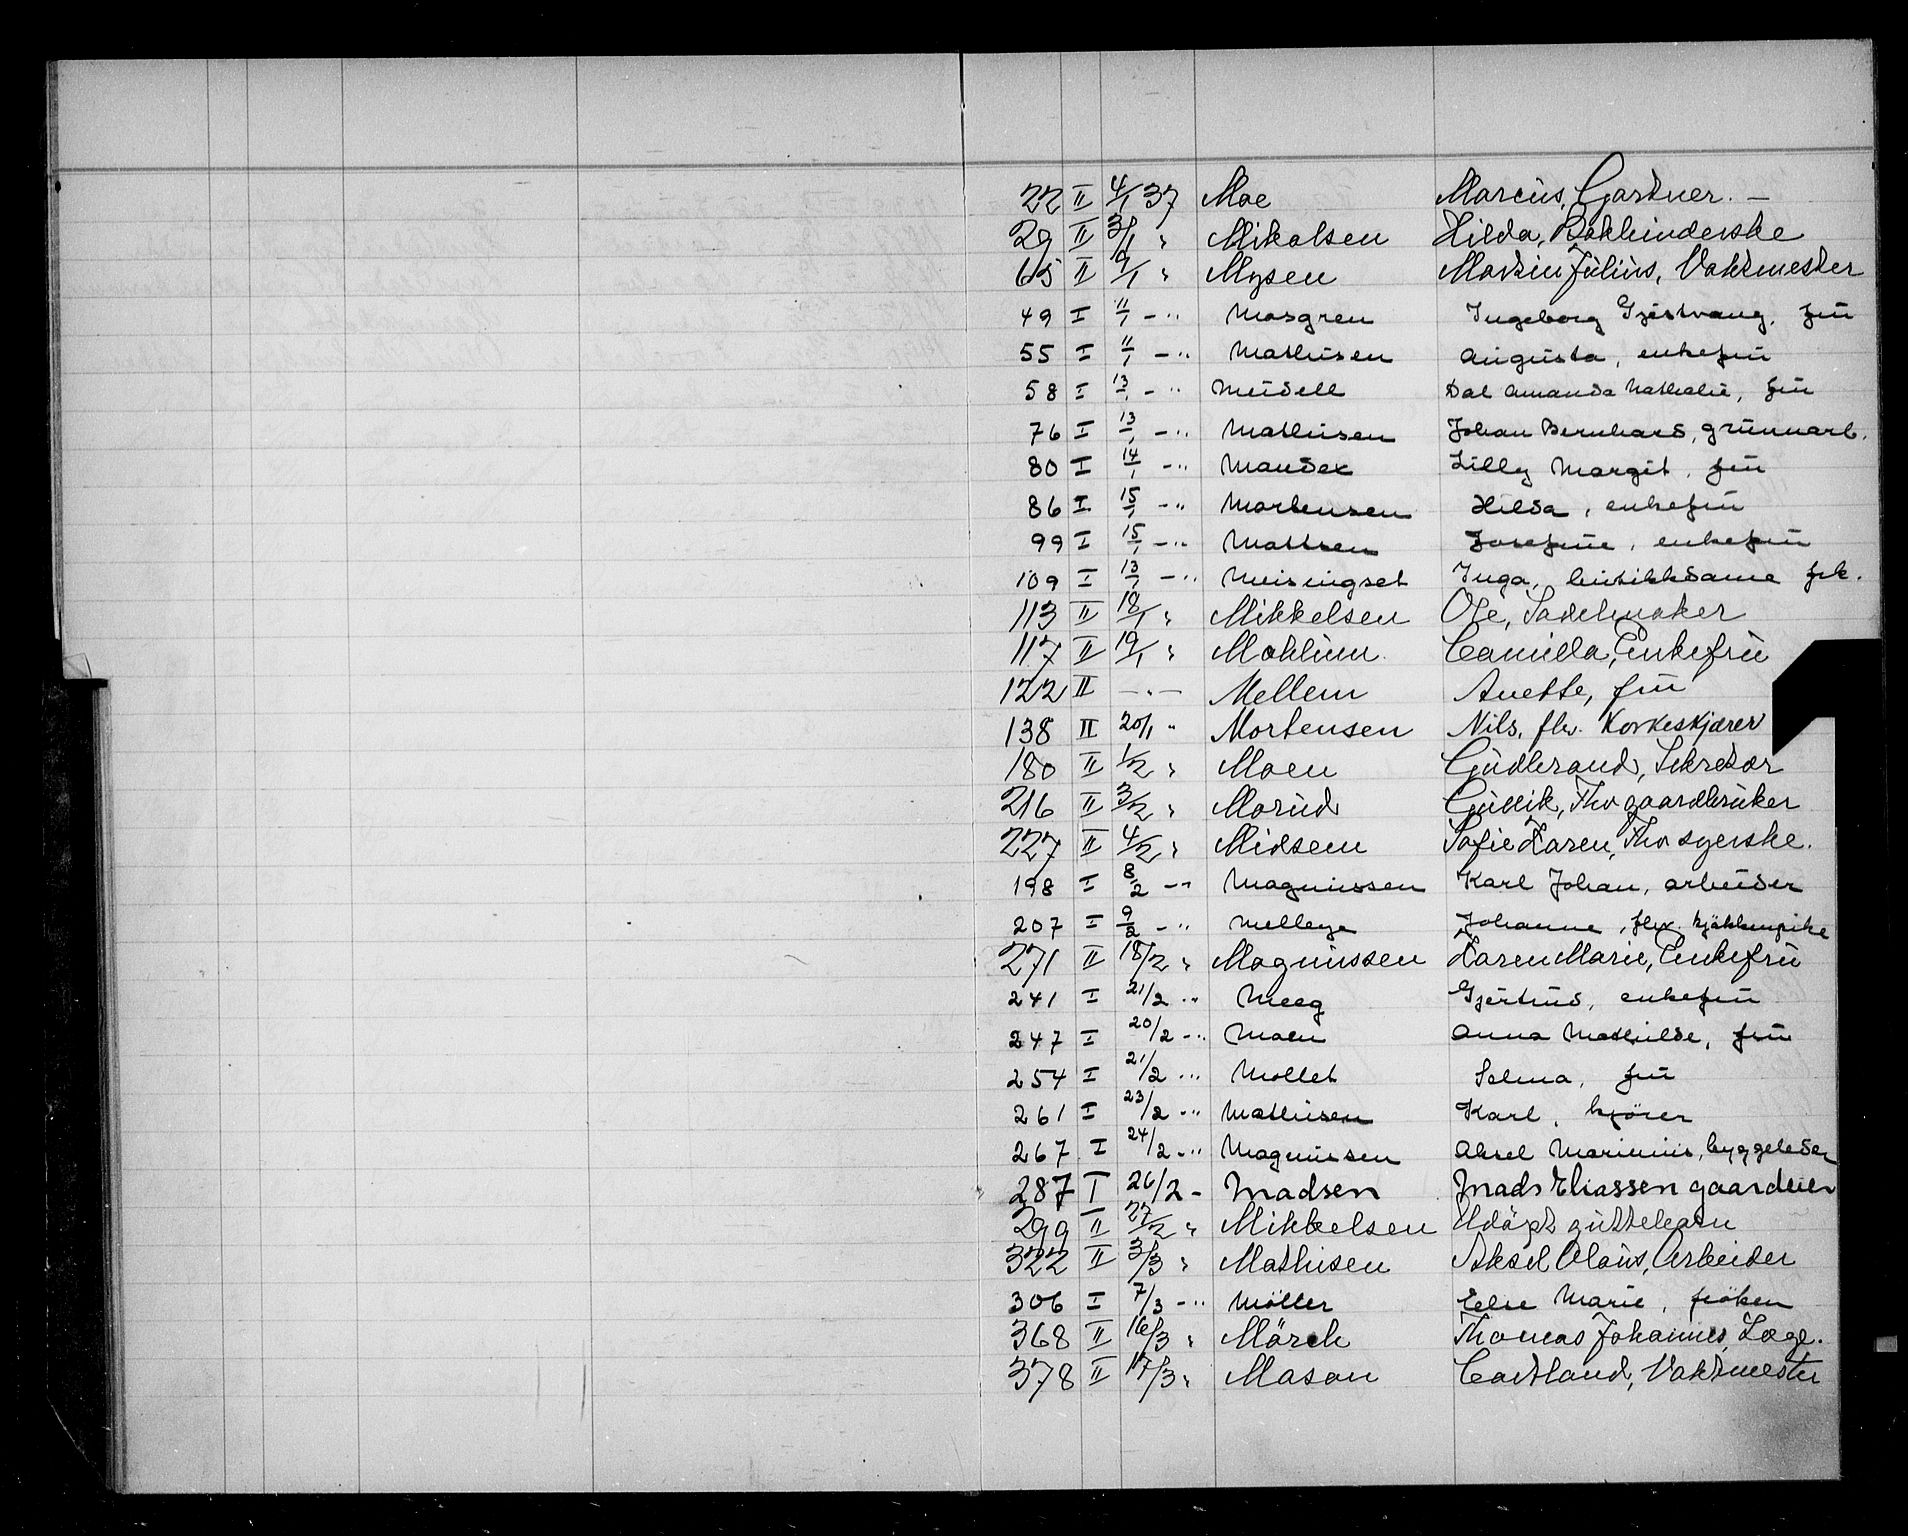 22 II 4/1 37 Moe Marcus, Gartner. –
29 II 3/1 " Mikalsen Hilda, Bokbinderske
65 II 9/1 " Mysen Martin Julius, Vaktmester
49 I 11/1 - " Mosgren Ingeborg Gjestvang, fru
55 I 11/1 - " Mathisen Augusta, enkefru
58 I 13/1 - " Meidell Dal Amanda Nathalie, fru
76 I 13/1 - " Mathisen Johan Bernhard, grunnarb.
80 I 14/1 - " Lilly Margit, fru
86 I 15/1 - " Mortensen Hilda, enkefru
99 I 15/1 - " Mattsen Josefine, enkefru
109 I 13/1 - " Meisingset Inga, butikkdame frk.
113 II 18/1 " Mikkelsen Ole, Sadelmaker
117 II 19/1 " Mohlum Camilla, Enkefru
122 II - " - Mellem Anette, fru
138 II 20/1 " Mortensen Nils, flv. Korkeskjærer
180 II 1/2 " Moen Gudbrand, Sekretær
216 II 3/2 " Morud Gullik, Fhv gaardbruker
227 II 4/2 " Midsem Sofie Karen, Fhv syerske.
198 I 8/2 - " Magnussen Karl Johan, arbeider
207 I 9/2 - " Mellege Johanne, flv. kjøkkenpike
271 II 18/2 " Magnussen Karen Marie, Enkefru
241 I 21/2 - " Meeg Gjertrud, enkefru
247 I 20/2 - " Moen Anna Mathilde, fru
254 I 21/2 - " Mollet Selma, fru
261 I 23/2 - " Mathisen Karl, kjører
267 I 24/2 - " Magnussen Aksel Marinius, byggeleder
287 I 26/2 - Madsen Mads Eliassen gaardeier
299 II 27/2 " Mikkelsen Udøpt guttebarn
322 II 3/3 " Mathisen Aksel Olaus, Arbeider
306 I 7/3 - " Möller Marie, frøken
368 II 16/3 " Mörch Thomas Johannes, Læge.
378 II 17/3 " Mason Cartland, Vaktmester